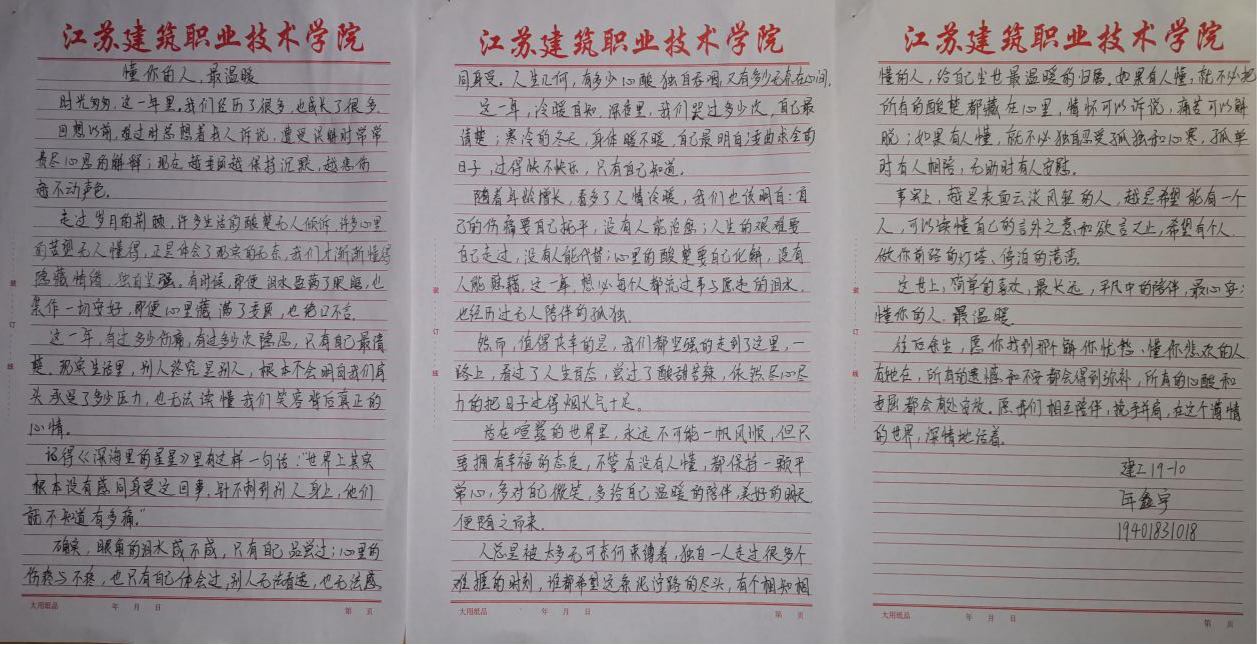 江苏建筑职业技术学院
懂你的人、最温暖
时光匆匆,这一年里,我们经历了很多,也成长了很多.
回想以前,难过时总想着去人诉说,遭受误解时常常
费尽心思的解释;现在,越重要越保持沉默,越悲伤
越不动声色。
走过岁月的荆棘,许多生活的酸楚无人倾诉,许多心里
的苦望无人懂得,正是体会了现实的无奈,我们才渐渐懂得
隐藏情绪,独自坚强。有时候,即使泪水盈满了眼眶,也
装作一切安好,即使心里藏满了委屈,也绝口不言。
这一年,有过多少伤痛,有过多少次隐忍,只有自己最清
楚。现实生活里,别人终究是别人,根本不会明白我们肩
头承受了多少压力,也无法读懂我们笑容背后真正的
心情。
记得《深海里的星星》里有这样一句话:“世界上其实
根本没有感同身受这回事,针不刺到别人身上,他们
就不知道有多痛.”
确实,眼角的泪水咸不咸,只有自己品尝过;心里的
伤疼与不疼,也只有自己体会过,别人无法看透,也无法感
大翔纸品 年 月 日 第 页
装
订
线
江苏建筑职业技术学院
同身受。人生几何,有多少心酸独自吞咽,又有多少无奈在心间.
这一年,冷暖自知,深夜里,我们哭过多少次,自己最
清楚;寒冷的冬天,身体暖不暖,自己最明白;委曲求全的
日子,过得快不快乐,只有自己知道.
随着年龄增长,看多了人情冷暖,我们也该明白:自
己的伤痛要自己抚平,没有人能治愈;人生的艰难要
自己走过,没有人能代替;心里的酸楚要自己化解,没有
人能慰藉。这一年,想必每个人都流过事与愿违的泪水,
也经历过无人陪伴的孤独.
然而,值得庆幸的是,我们都坚强的走到了这里,一
路上,看过了人生百态,尝过了酸甜苦辣,依然尽心尽
力的把日子过得烟火气十足。
活在喧嚣的世界里,永远不可能一帆风顺,但只
要拥有幸福的态度,不管有没有人懂,都保持一颗平
常心,多对自己微笑,多给自己温暖的陪伴,美好的明天
便随之而来.
人总是被太多无可奈何束缚着,独自一人走过很多个
难捱的时刻,谁都希望这条泥泞路的尽头,有个相知相
大翔纸品 年 月 日 第 页
装
订
线
江苏建筑职业技术学院
懂的人,给自己尘世最温暖的归属。如果有人懂,就不必把
所有的酸楚都藏在心里,情怀可以诉说,痛苦可以解
脱;如果有人懂,就不必独自忍受孤独和心寒,孤单
时有人相陪,无助时有人安慰.
事实上,越是表面云淡风轻的人,越是希望能有一个
人,可以读懂自己的言外之意和欲言又止,希望有个人,
做你前路的灯塔、停泊的港湾。
这世上,简单的喜欢,最长远,平凡中的陪伴,最心安;
懂你的人、最温暖
往后余生,愿你找到那个解你忧愁、懂你悲欢的人
有她在,所有的遗憾和不安都会得到弥补,所有的心酸和
委屈都会有处安放。愿我们相互陪伴,携手并肩,在这个薄情
的世界,深情地活着.
建工19-10
鑫宇
19401831018
大翔纸品 年 月 日 第 页